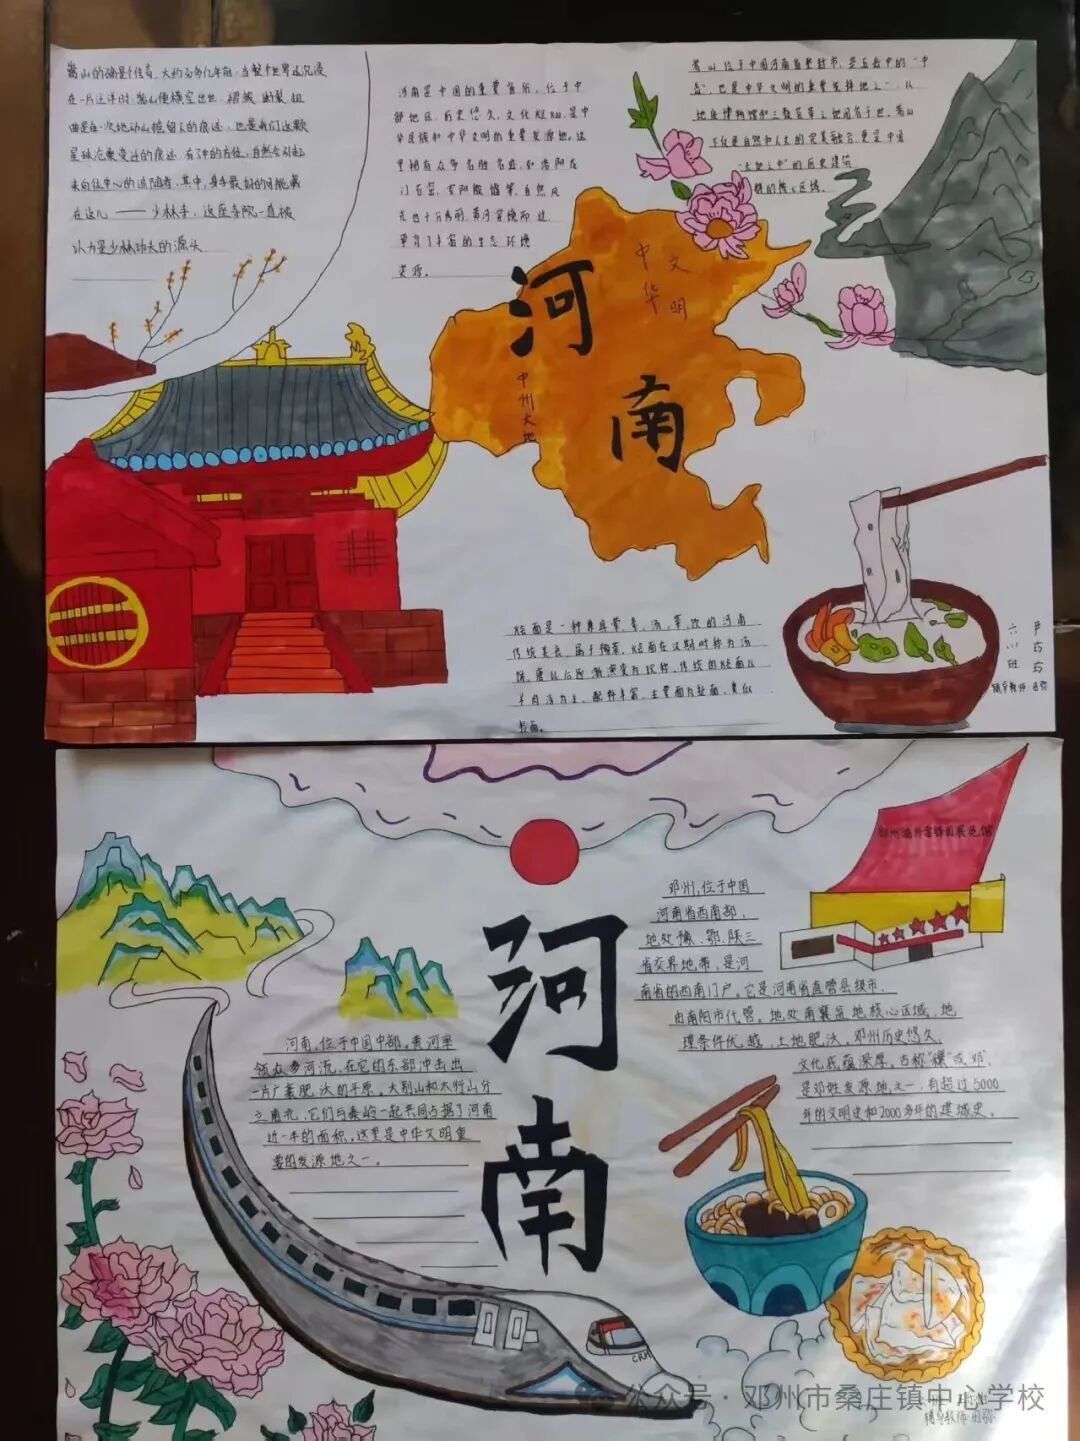 嵩山的确是个传奇,大约36多亿年前,当整个世界还沉浸
在一片汪洋时,嵩山便横空出世,褶皱、断裂、扭
曲是每一次地动山摇留下的痕迹,也是我们这颗
星球沧桑变迁的痕迹,有了中的方位,自然会引起
来自往中心的追随者,其中,身手最好的可能藏
在这儿——少林寺,这座寺院一直被
认为是少林功夫的源头
河南是中国的重要省份,位于中
部地区,历史悠久,文化
华民族和中华文明的重要发源地。这
里拥有众多名胜古迹,如洛阳龙
门石窟、安阳殷墟等,自然风
光也十分秀丽,黄河穿境而过,
孕育了丰富的生态环境
资源。
嵩山位于中国河南省登封市,是五岳中的“中
岳”,也是中华文明的重要发祥地之一,以
地质博物馆和三教荟萃之地闻名于世。嵩山
不仅是自然和人文的完美融合,更是中国
“天地之中”的历史建筑
群的核心区域。
中华
文明
河南
中州大地
烩面是一种兼具荤、素、汤、菜、饭的河南
传统美食,属于豫菜,烩面在汉朝时称为汤
饼,唐以后逐渐演变为现称,传统的烩面以
羊肉汤为主,配料丰富,主要面为拉面,类似
拉面。
六(1)班
辅导教师
邓州编外雷锋团展览馆
河南
邓州,位于中国
河南省西南部,
地处豫、鄂、陕三
省交界地带,是河
南省的西南门户。它是河南省直管县级市,
由南阳市代管。地处南襄盆地核心区域,地
理条件优越,土地肥沃,邓州历史悠久,
文化底蕴深厚。古称“穰”或“邓”,
是邓姓发源地之一,有超过5000
年的文明史和2000多年的建城史。
河南,位于中国中部。黄河率
领众多河流,在它的东部冲击出
一片广袤肥沃的平原。大别山和太行山分
立南北,它们与秦岭一起共同占据了河南
近一半的面积。这里是中华文明重
要的发源地之一。
CRH
公众号·邓州市桑庄镇中心学校
辅导教师